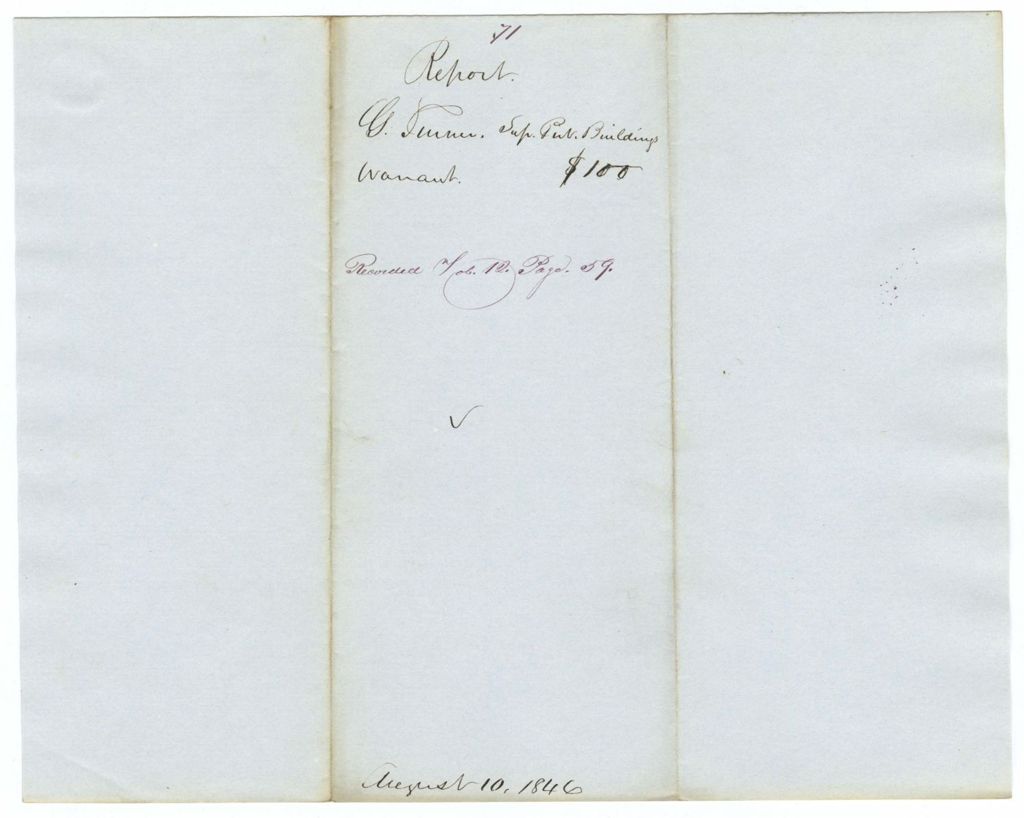 71
Report.
C. Turner. Sup. Pub. Buildings
Warrant. $100
Recorded Vol. 12. Page. 59.
August 10, 1846